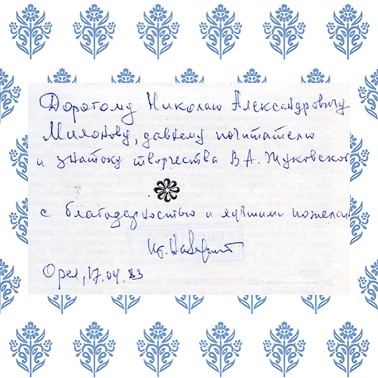 Дорогому Николаю Александровичу
Милонову, давнему почитателю
и знатоку творчества В.А. Жуковског
с благодарностью и лучшими пожелан
Орел, 17.04.83